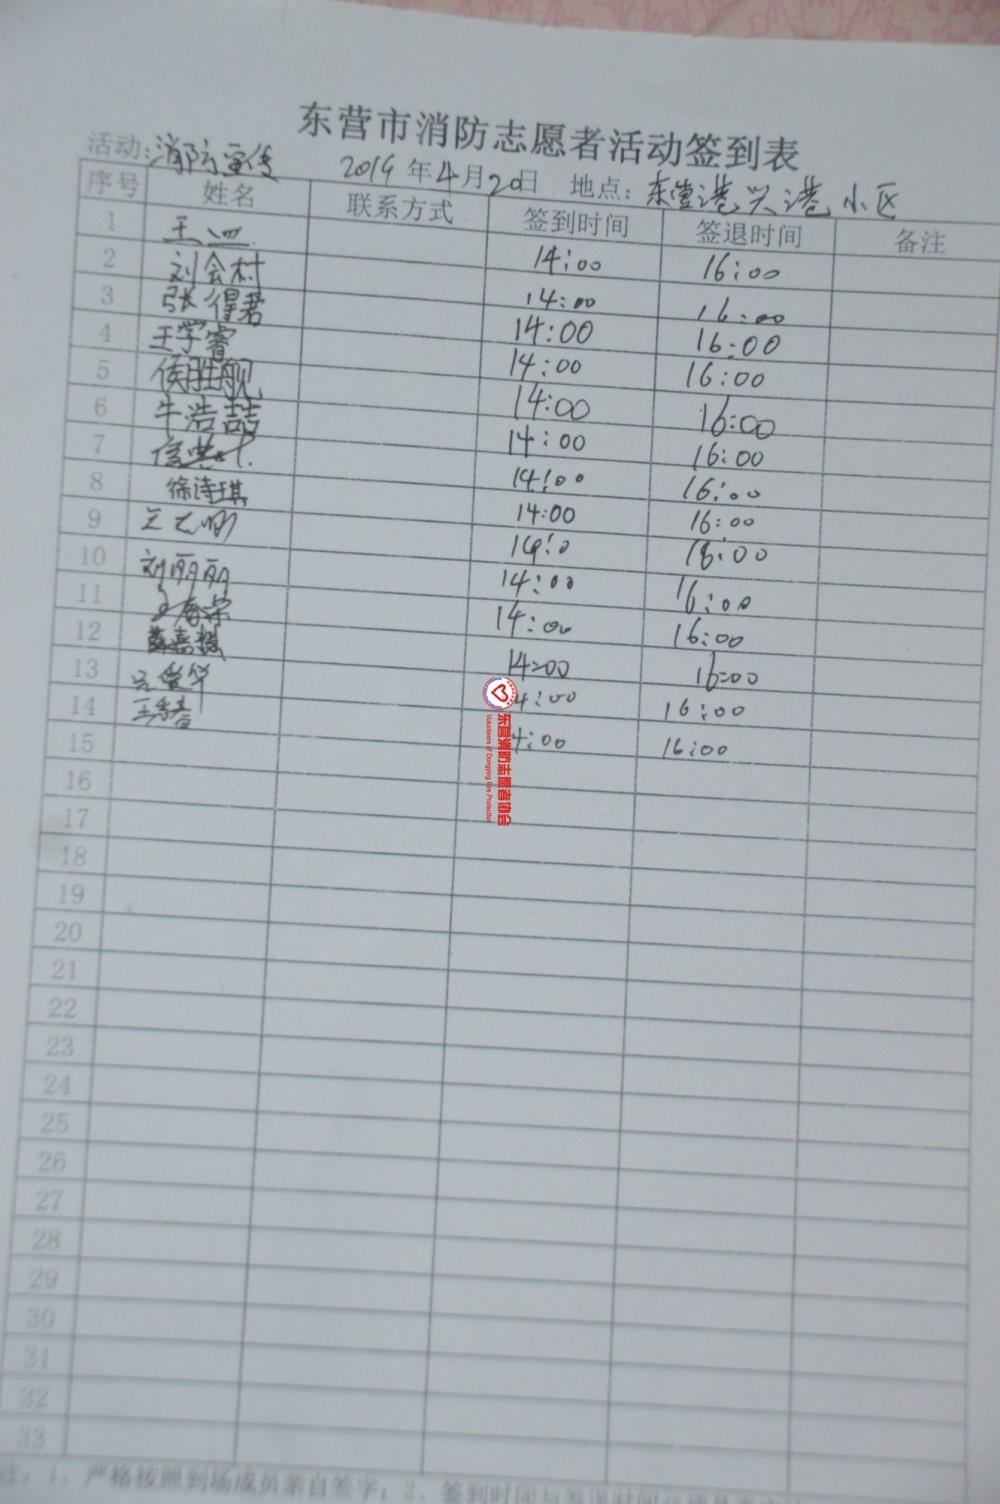 东营市消防志愿者活动签到表
活动:消防宣传 2019年4月20日 地点:东营港兴港小区
序号 姓名 联系方式 签到时间 签退时间 备注
1 王
2 刘会村 14:00 16:00
3 张得君 14:00 16:00
4 王学睿 14:00 16:00
5 侯胜舰 14:00 16:00
6 牛浩喆 14:00 16:00
7 14:00 16:00
8 徐诗琪 14:00 16:00
9 14:00 16:00
10 刘丽丽 14:0 16:00
11 14:00 16:00
12 14:00 16:00
13 14:00 16:00
14 王秀春 4:00 16:00
15 4:00 16:00
16
17
18
19
20
21
22
23
24
25
26
27
28
29
30
31
32
33
东营消防志愿者协会
Volunteers of Dongying Fire Protection
注:1、严格按照到场成员亲自签字;2、签到时间与签退时间